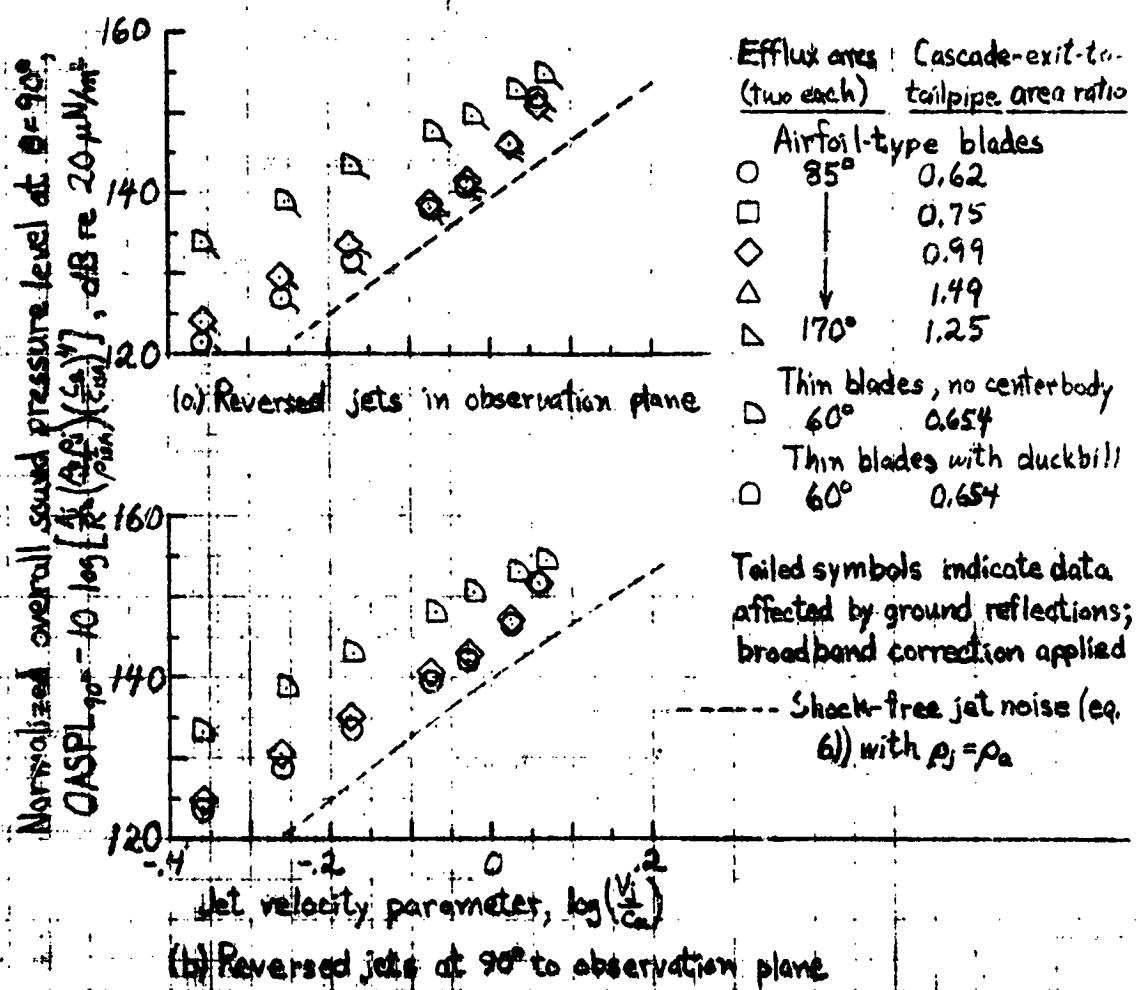 Normalized overall sound pressure level at θ=90°,
OASPL90° - 10 log[Aj/R² (ρj/ρISA) (ca/cISA)⁴], dB re 20 μN/m²
160
140
120
(a) Reversed jets in observation plane
160
140
120
-.4 -.2 0 .2
Jet velocity parameter, log(Vj/ca)
(b) Reversed jets at 90° to observation plane
Efflux arcs Cascade-exit-to-
(two each) tailpipe area ratio
Airfoil-type blades
85° 0.62
0.75
0.99
1.49
170° 1.25
Thin blades, no centerbody
60° 0.654
Thin blades with duckbill
60° 0.654
Tailed symbols indicate data
affected by ground reflections;
broadband correction applied
Shock-free jet noise (eq.
6)) with ρj=ρa